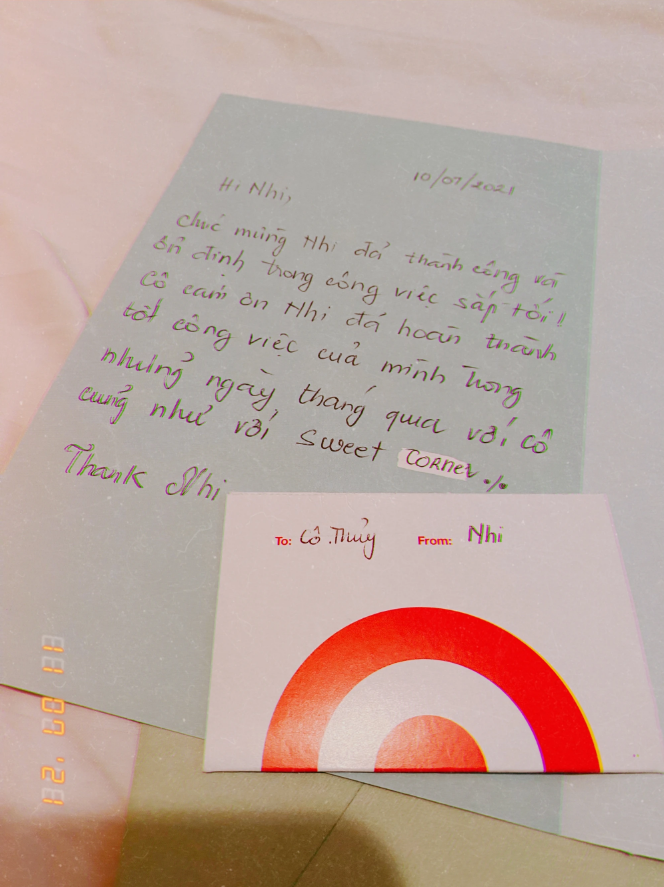 10/07/2021
Hi Nhi,
Chúc mừng Nhi đã thành công và
ổn định trong công việc sắp tới!
Cô cảm ơn Nhi đã hoàn thành
tốt công việc của mình trong
những ngày tháng qua với cô
cũng như với Sweet Corner ./.
Thank Nhi
To: Cô.Thủy From: Nhi